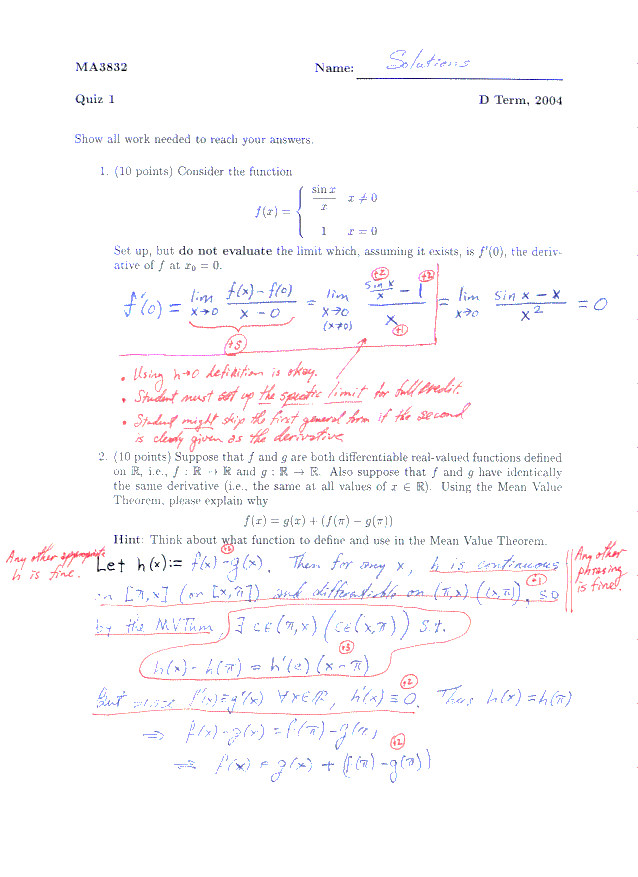 MA3832 Name: Solutions
Quiz 1 D Term, 2004
Show all work needed to reach your answers.
1. (10 points) Consider the function
f(x) = { sin x / x x ≠ 0
1 x = 0
Set up, but do not evaluate the limit which, assuming it exists, is f'(0), the deriv-
ative of f at x₀ = 0.
+2 +2
f'(0) = lim x→0 f(x) - f(0) / x - 0 = lim x→0 (x≠0) sin x / x - 1 / x = lim x→0 sin x - x / x² = 0
+5 +1
• Using h→0 definition is okay.
• Student must set up the specific limit for full credit.
• Student might skip the first general form if the second
is clearly given as the derivative.
2. (10 points) Suppose that f and g are both differentiable real-valued functions defined
on ℝ, i.e., f : ℝ → ℝ and g : ℝ → ℝ. Also suppose that f and g have identically
the same derivative (i.e., the same at all values of x ∈ ℝ). Using the Mean Value
Theorem, please explain why
f(x) = g(x) + (f(π) − g(π))
Hint: Think about what function to define and use in the Mean Value Theorem.
Any other appropriate
h is fine.
+2
Let h(x):= f(x)-g(x). Then for any x, h is continuous
Any other
phrasing
is fine.
+1
in [π,x] (or [x,π]) and differentiable on (π,x) ((x,π)), so
by the MVThm, ∃ c∈(π,x) (c∈(x,π)) s.t.
+3
h(x)-h(π) = h'(c)(x-π)
+2
But since f'(x)=g'(x) ∀x∈ℝ, h'(x) ≡ 0. Thus h(x)=h(π)
⇒ f(x)-g(x) = f(π)-g(π)
+2
⇒ f(x) = g(x) + (f(π)-g(π))